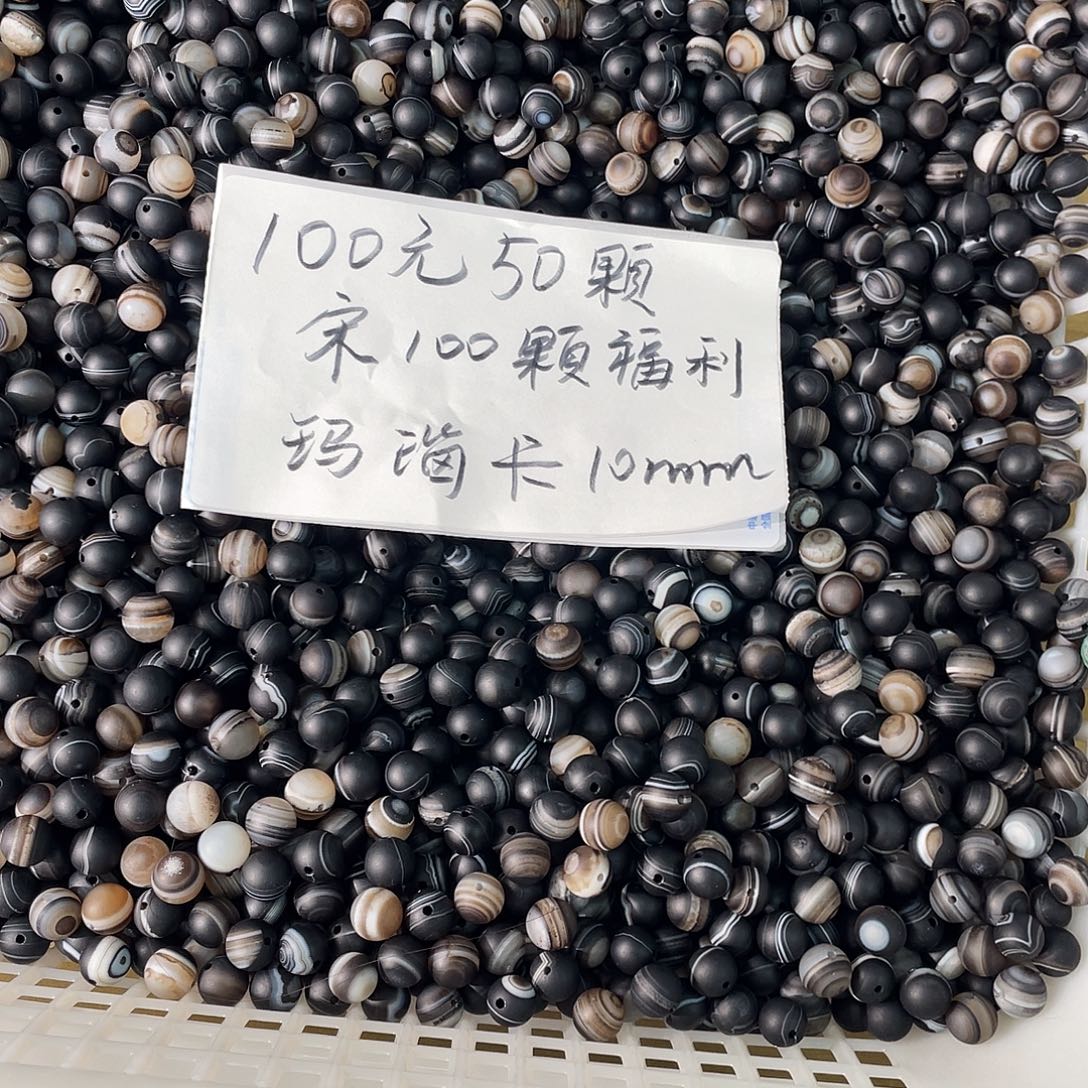 100元50顆
宋100顆福利
玛瑙卡10mm